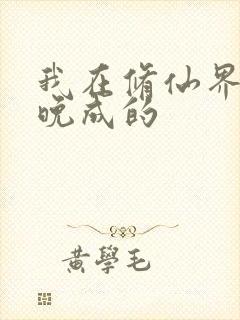 我在修仙界
晚成的
黄學毛